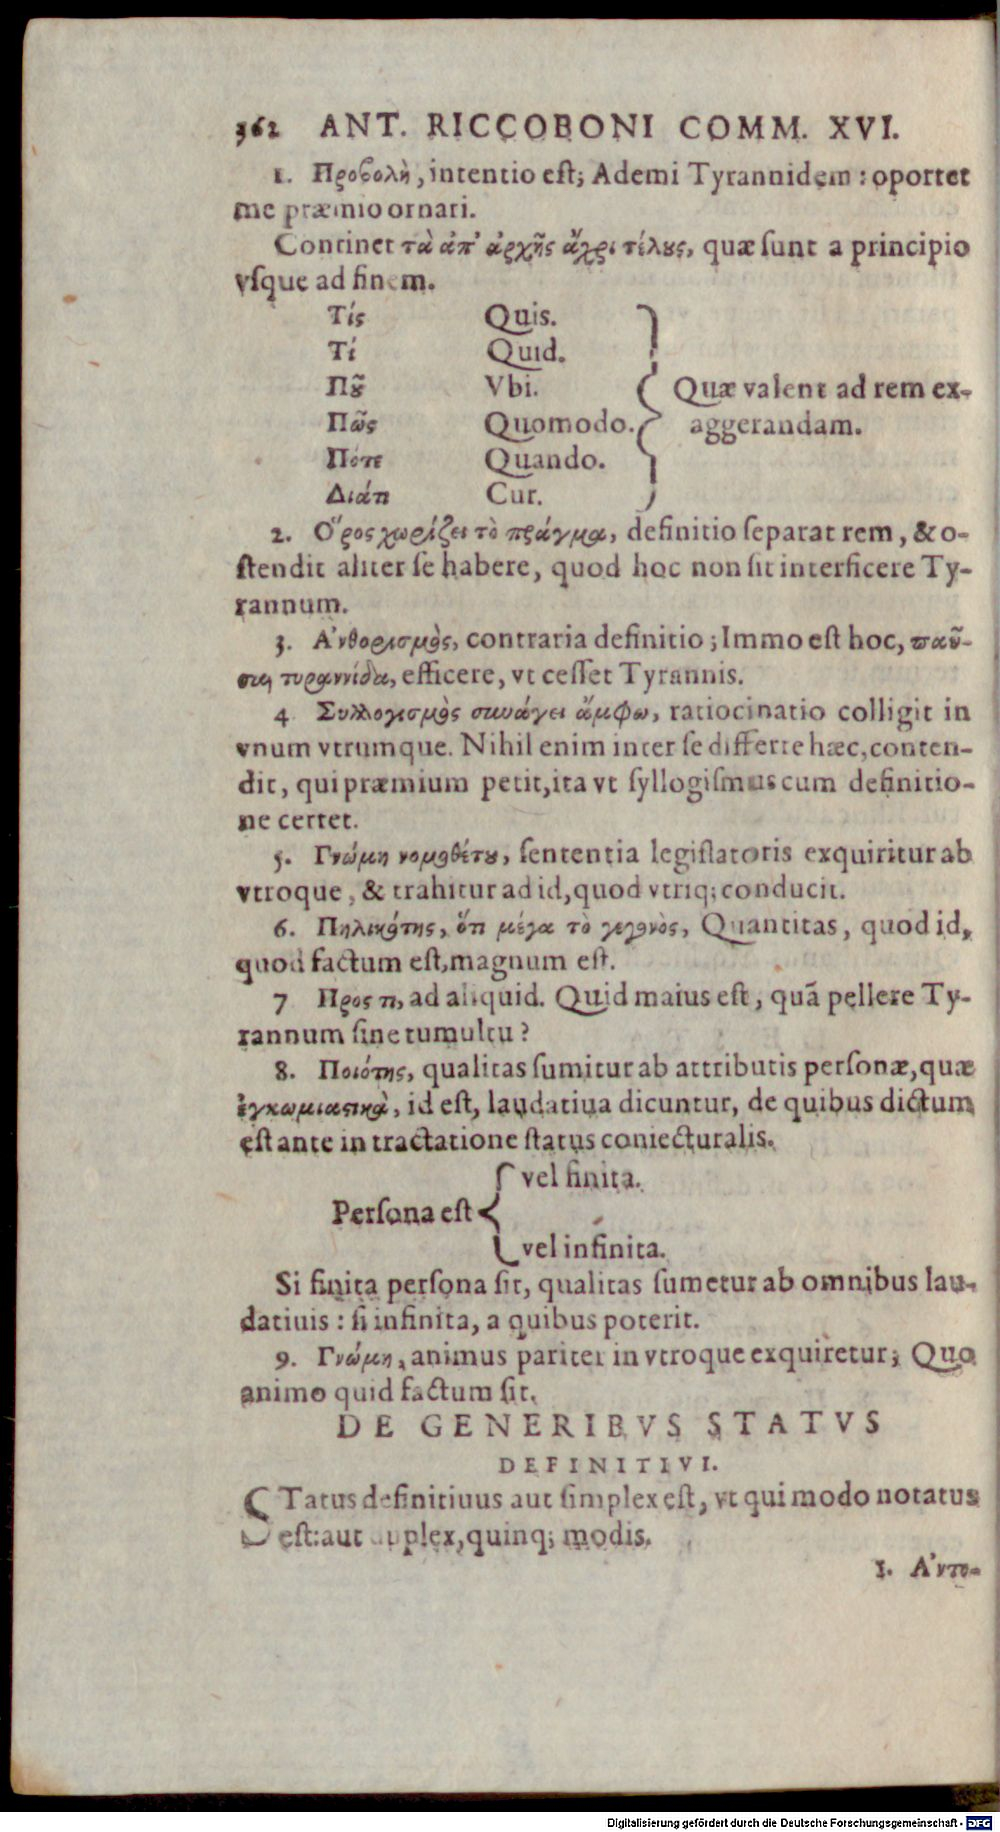 362 ANT. RICCOBONI COMM. XVI.
1. Προβολὴ, intentio eſt; Ademi Tyrannidem: oportet
me præmio ornari.
Continet τὰ ἀπ' ἀρχῆς ἄχρι τέλους, quæ ſunt a principio
vſque ad finem.
Τίς Quis.
Τί Quid.
Ποῦ Vbi. Quæ valent ad rem ex-
Πῶς Quomodo. aggerandam.
Πότε Quando.
Διάτι Cur.
2. Ὅρος χωρίζει τὸ πρᾶγμα, definitio ſeparat rem, & o-
ſtendit aliter ſe habere, quod hoc non ſit interficere Ty-
rannum.
3. Ἀνθορισμὸς, contraria definitio; Immo eſt hoc, παῦ-
σαι τυραννίδα, efficere, vt ceſſet Tyrannis.
4 Συλλογισμὸς συνάγει ἄμφω, ratiocinatio colligit in
vnum vtrumque. Nihil enim inter ſe differre hæc, conten-
dit, qui præmium petit, ita vt ſyllogiſmus cum definitio-
ne certet.
5. Γνώμη νομοθέτου, ſententia legiſlatoris exquiritur ab
vtroque, & trahitur ad id, quod vtriq; conducit.
6. Πηλικότης, ὅτι μέγα τὸ γεγονὸς, Quantitas, quod id,
quod factum eſt, magnum eſt.
7 Προς τι, ad aliquid. Quid maius eſt, quã pellere Ty-
rannum ſine tumultu?
8. Ποιότης, qualitas ſumitur ab attributis perſonæ, quæ
ἐγκωμιαστικὰ, id eſt, laudatiua dicuntur, de quibus dictum
eſt ante in tractatione ſtatus coniecturalis.
vel finita.
Perſona eſt
vel infinita.
Si finita perſona ſit, qualitas ſumetur ab omnibus lau-
datiuis: ſi infinita, a quibus poterit.
9. Γνώμη, animus pariter in vtroque exquiretur; Quo
animo quid factum ſit.
DE GENERIBVS STATVS
DEFINITIVI.
STatus definitiuus aut ſimplex eſt, vt qui modo notatus
eſt: aut duplex, quinq; modis.
1. Ἀντο-
Digitalisierung gefördert durch die Deutsche Forschungsgemeinschaft - DFG